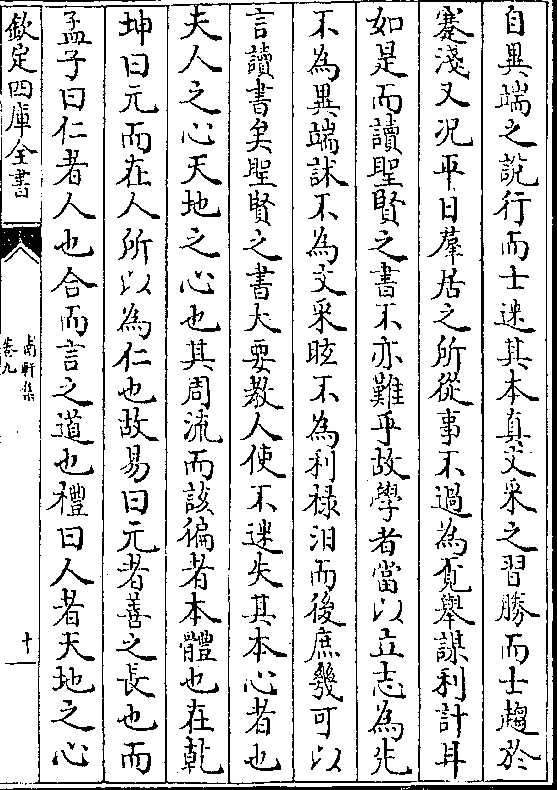 自異端之説行而士迷其本真文采之習勝而士趨於
蹇淺又况平日羣居之所從事不過為覓舉謀利計耳
如是而讀聖賢之書不亦難乎故學者當以立志為先
不為異端訹不為文采眩不為利祿汩而後庶幾可以
言讀書矣聖賢之書大要教人使不迷失其本心者也
夫人之心天地之心也其周流而該徧者本體也在乾
坤曰元而在人所以為仁也故易曰元者善之長也而
孟子曰仁者人也合而言之道也禮曰人者天地之心
欽定四庫全書
南軒集
卷九
十